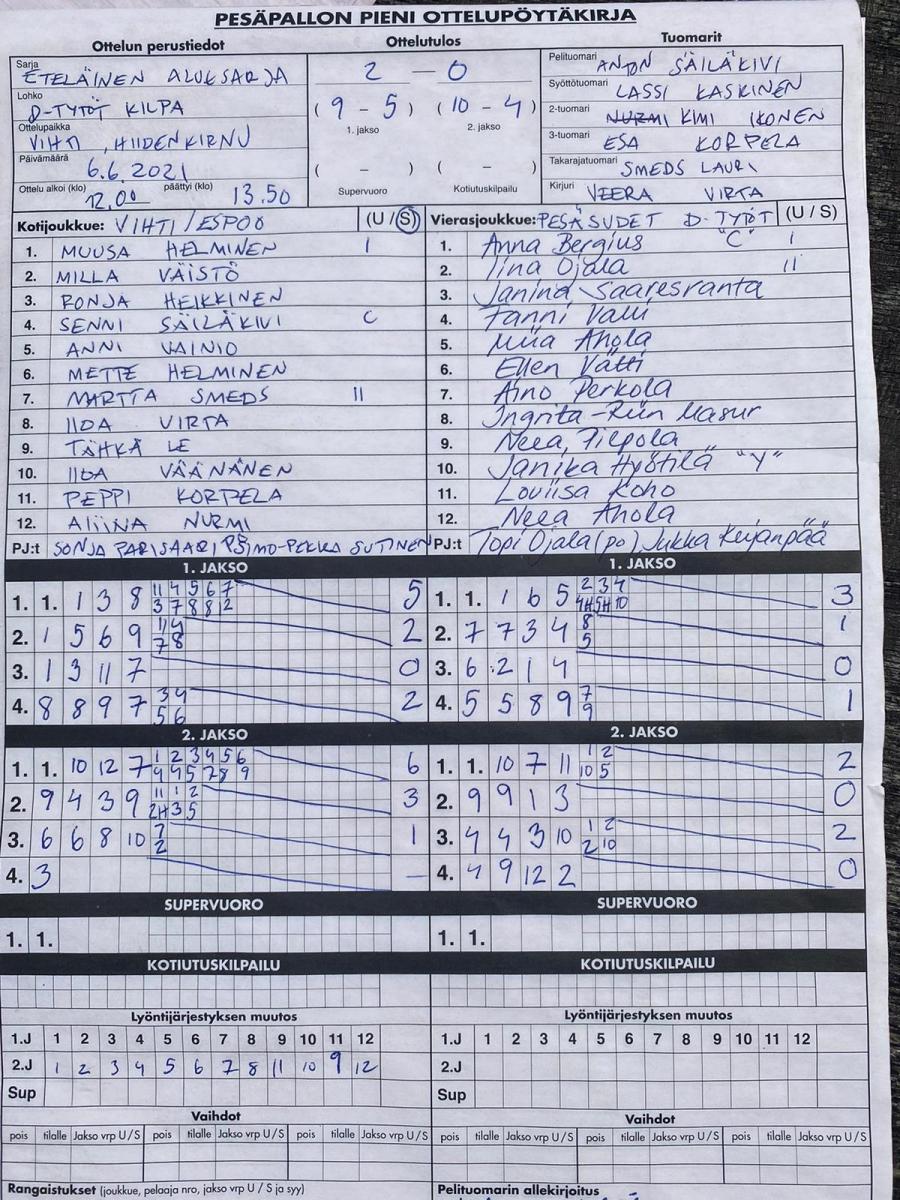 PESÄPALLON PIENI OTTELUPÖYTÄKIRJA
Ottelun perustiedot Ottelutulos Tuomarit
Sarja ETELÄINEN ALUESARJA 2 – 0 Pelituomari ANTON SÄILÄKIVI
Lohko D-TYTÖT KILPA (9 – 5) (10 – 4) Syöttötuomari LASSI KASKINEN
Ottelupaikka VIHTI, HIIDENKIRNU 1. jakso 2. jakso 2-tuomari NURMI KIMI IKONEN
Päivämäärä 6.6.2021 3-tuomari ESA KORPELA
( – ) ( – ) Takarajatuomari SMEDS LAURI
Ottelu alkoi (klo) 12.00 päättyi (klo) 13.50 Supervuoro Kotiutuskilpailu Kirjuri VEERA VIRTA
Kotijoukkue: VIHTI/ESPOO (U / S) Vierasjoukkue: PESÄSUDET D-TYTÖT (U / S)
1. MUUSA HELMINEN I 1. Anna Bergius "C" I
2. MILLA VÄISTÖ 2. Iina Ojala II
3. RONJA HEIKKINEN 3. Janina Saaresranta
4. SENNI SÄILÄKIVI C 4. Fanni
5. ANNI VAINIO 5. Miia Ahola
6. METTE HELMINEN 6. Ellen Vätti
7. MARTTA SMEDS II 7. Aino Perkola
8. IIDA VIRTA 8. Ingrita-Riin Masur
9. TÄHKÄ LE 9. Neea Tiepola
10. IIDA VÄÄNÄNEN 10. Janika Hyötilä "Y"
11. PEPPI KORPELA 11. Loviisa Koho
12. ALIINA NURMI 12. Neea Ahola
PJ:t SONJA PARISAARI SIMO-PEKKA SUTINEN PJ:t Topi Ojala (po) Jukka Keijanpää
1. JAKSO 1. JAKSO
1. 1. 1 3 8 11 4 5 6 7 5 1. 1. 1 6 5 2 3 4 3
3 7 8 8 12 4H 5H 10
2. 1 5 6 9 11 4 2 2. 7 7 3 4 8 1
7 8 5
3. 1 3 11 7 0 3. 6 2 1 4 0
4. 8 8 9 7 3 4 2 4. 5 5 8 9 7 1
5 6 9
2. JAKSO 2. JAKSO
1. 1. 10 12 7 1 2 3 4 5 6 6 1. 1. 10 7 11 1 2 2
4 4 5 7 8 9 10 5
2. 9 4 3 9 11 1 2 3 2. 9 9 1 3 0
2H 3 5
3. 6 6 8 10 7 1 3. 4 4 3 10 1 2 2
2 2 10
4. 3 – 4. 4 9 12 2 0
SUPERVUORO SUPERVUORO
1. 1. 1. 1.
KOTIUTUSKILPAILU KOTIUTUSKILPAILU
Lyöntijärjestyksen muutos Lyöntijärjestyksen muutos
1.J 1 2 3 4 5 6 7 8 9 10 11 12 1.J 1 2 3 4 5 6 7 8 9 10 11 12
2.J 1 2 3 4 5 6 7 8 11 10 9 12 2.J
Sup Sup
Vaihdot Vaihdot
pois tilalle Jakso vrp U/S pois tilalle Jakso vrp U/S pois tilalle Jakso vrp U/S pois tilalle Jakso vrp U/S pois tilalle Jakso vrp U/S pois tilalle Jakso vrp U/S
Rangaistukset (joukkue, pelaaja nro, jakso vrp U / S ja syy) Pelituomarin allekirjoitus